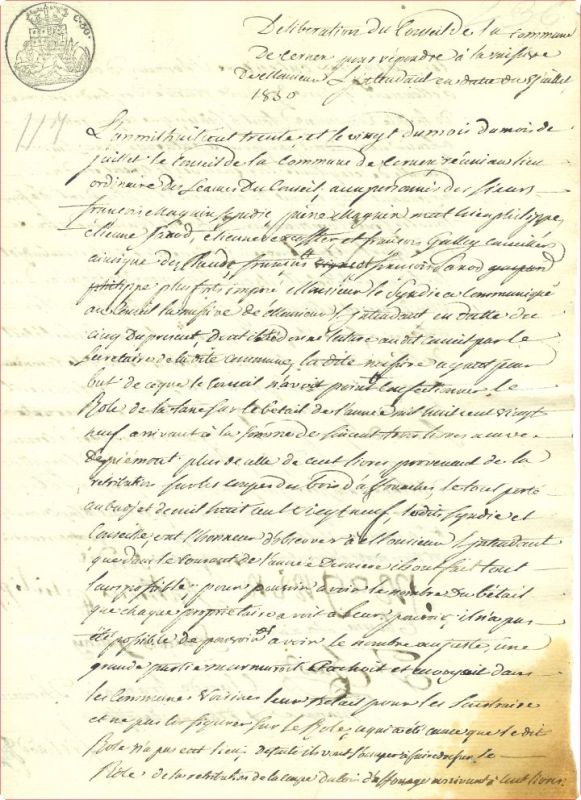 Deliberation du Conseil de la Commune
De Cernex pour répondre à la missive
De Monsieur L'intendant en date du 5 juillet
1830
117
L'an mil huit cent trente et le vingt du mois du mois de
juillet le Conseil de la Commune de Cernex réuni au lieu
ordinaire des Séances Du Conseil, aux personnes des Sieurs
françois Magnin Syndic, pierre Magnin
etienne et françois Gally Conseillers
ainsi que des françois
philippe plus forts Monsieur le Syndic a Communiqué
au Conseil la missive de Monsieur L'intendant en datte du
Cinq Du présent, donné lecture audit Conseil par le
Secretaire de la dite Commune, la dite missive ayant pour
but de ce que le Conseil n'avoit point Confectionné le
Role de la taxe sur le bétail de l'année mil huit cent vingt
neuf arrivant à la Somme de livres neuves
De piémont plus de celle de Cent livres provenant de la
retribution sur les coupes des bois d'affouage, le tout porté
au budjet de mil huit cent vingt neuf, ledit Syndic et
Conseille ont l'honneur d'observer à Monsieur L'intendant
que dans le Courant de l'année Derniere ils ont fait tout
leur possible pour pouvoir avoir le nombre du bétail
que chaque propriétaire avoit à leur pouvoir, il n'a pas
été possible de pouvoir avoir le nombre au juste, une
grande partie murmuroit Cachoit et envoyait dans
les Communes Voisines leur bétail pour les Soustraire
et ne pas les figurer sur le Role, ce qui a été cause que le dit
Role n'a pas eut lieu, le
Role de la retribution de la coupe du bois d'affouage arrivant à Cent livres